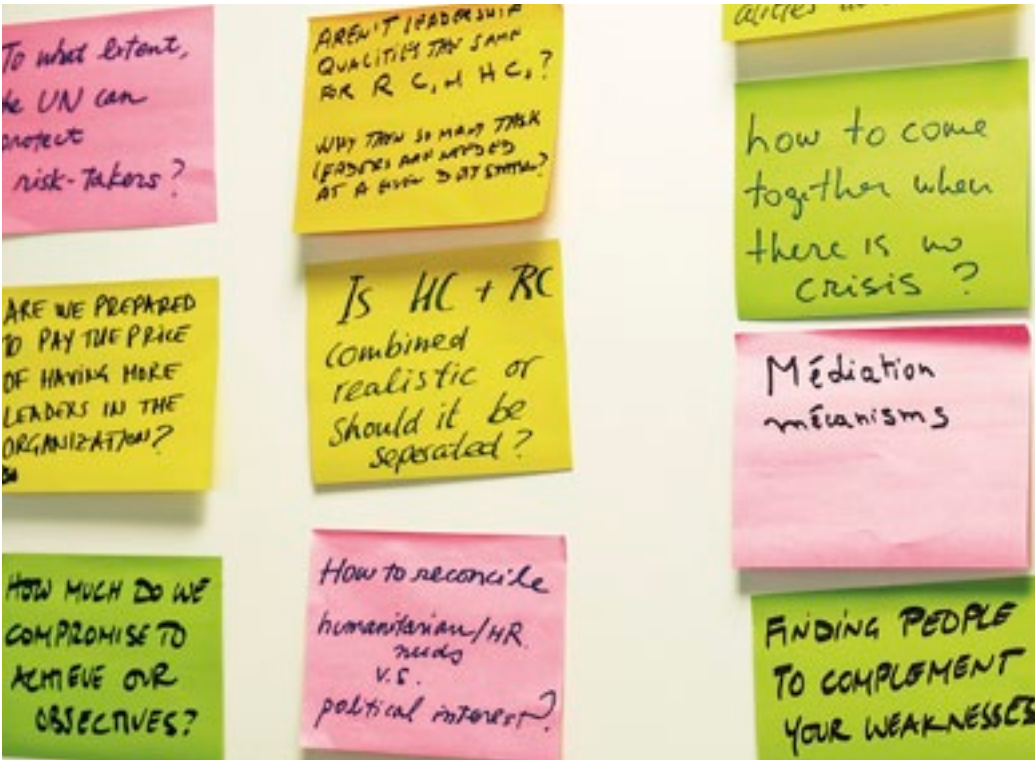 To what extent,
the UN can
protect
risk-takers?
ARE WE PREPARED
TO PAY THE PRICE
OF HAVING MORE
LEADERS IN THE
ORGANIZATION?
HOW MUCH DO WE
COMPROMISE TO
ACHIEVE OUR
OBJECTIVES?
AREN'T LEADERSHIP
QUALITIES THE SAME
FOR R C, HC,?
WHY THEN SO MANY TASK
LEADERS ARE NEEDED
AT A GIVEN
Is HC + RC
combined
realistic or
should it be
seperated?
How to reconcile
humanitarian/HR
needs
v.s.
political interest?
how to come
together when
there is no
crisis?
Médiation
mécanisms
FINDING PEOPLE
TO COMPLEMENT
YOUR WEAKNESSES